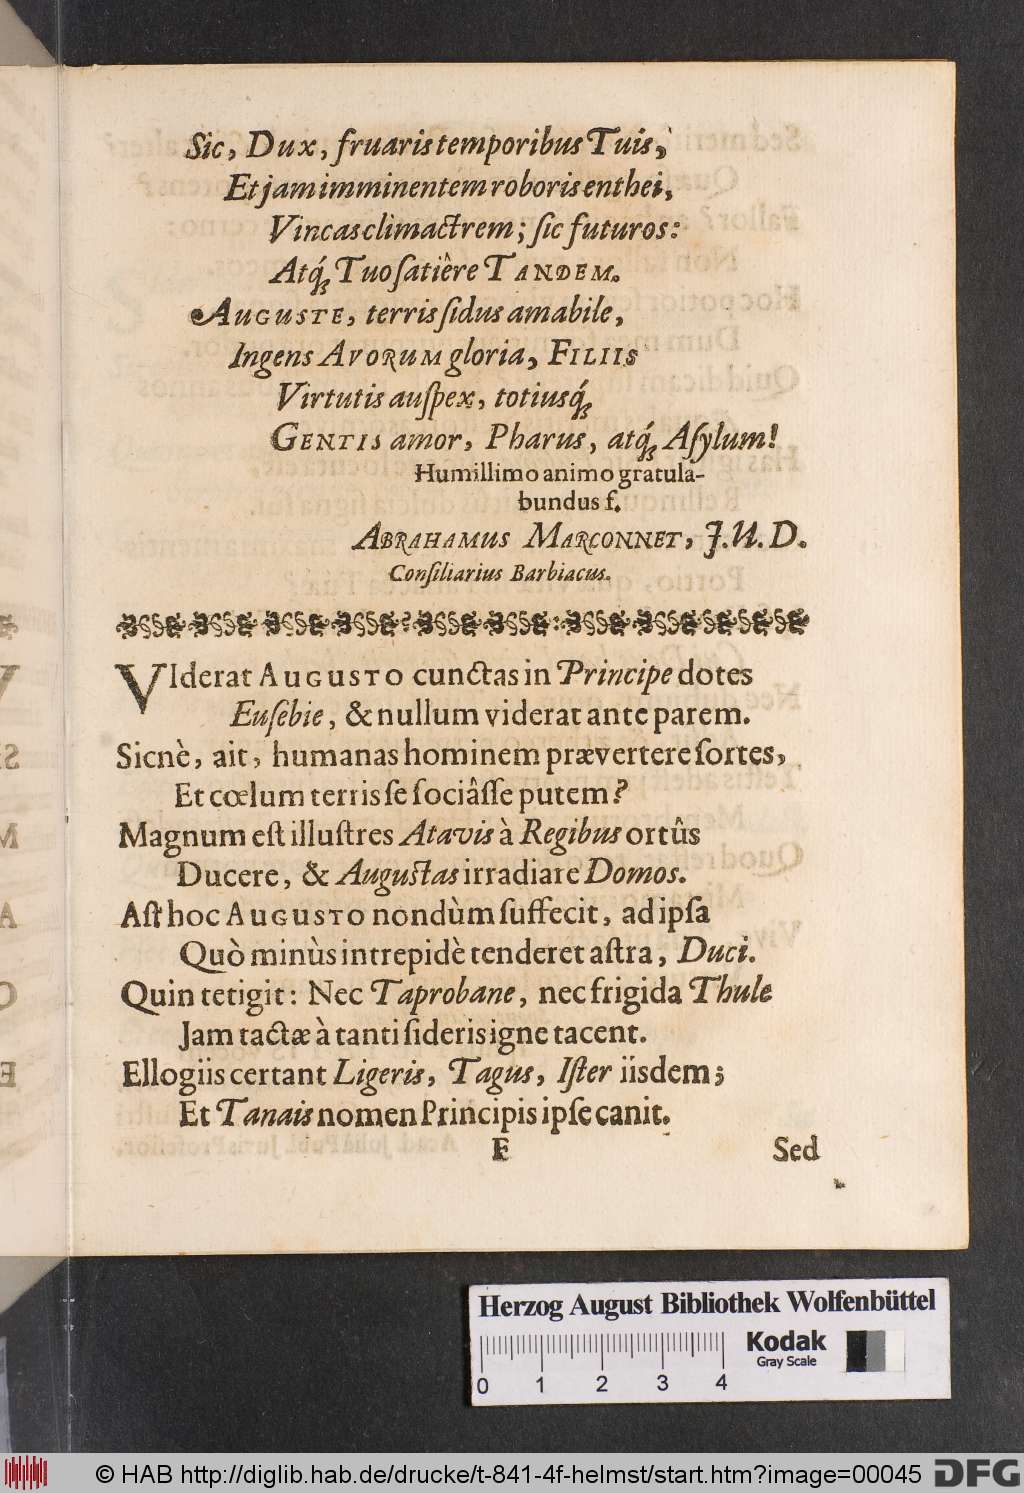 Sic, Dux, fruaris temporibus Tuis,
Et jam imminentem roboris enthei,
Vincas climactrem; ſic futuros:
Atq́ꝫ Tuo ſatiêre TANDEM.
AUGUSTE, terris ſidus amabile,
Ingens AVORUM gloria, FILIIS
Virtutis auſpex, totiusq́ꝫ
GENTIS amor, Pharus, atq́ꝫ Aſylum!
Humillimo animo gratula-
bundus f.
ABRAHAMUS MARCONNET, J.U.D.
Conſiliarius Barbiacus.
VIderat AUGUSTO cunctas in Principe dotes
Euſebie, & nullum viderat ante parem.
Sicnè, ait, humanas hominem prævertere ſortes,
Et cœlum terris ſe ſociâſſe putem?
Magnum eſt illuſtres Atavis à Regibus ortûs
Ducere, & Auguſtas irradiare Domos.
Aſt hoc AUGUSTO nondùm ſuffecit, ad ipſa
Quò minùs intrepidè tenderet aſtra, Duci.
Quin tetigit: Nec Taprobane, nec frigida Thule
Jam tactæ à tanti ſideris igne tacent.
Ellogiis certant Ligeris, Tagus, Iſter iisdem;
Et Tanais nomen Principis ipſe canit.
F Sed
Herzog August Bibliothek Wolfenbüttel
Kodak
Gray Scale
0 1 2 3 4
© HAB http://diglib.hab.de/drucke/t-841-4f-helmst/start.htm?image=00045
DFG